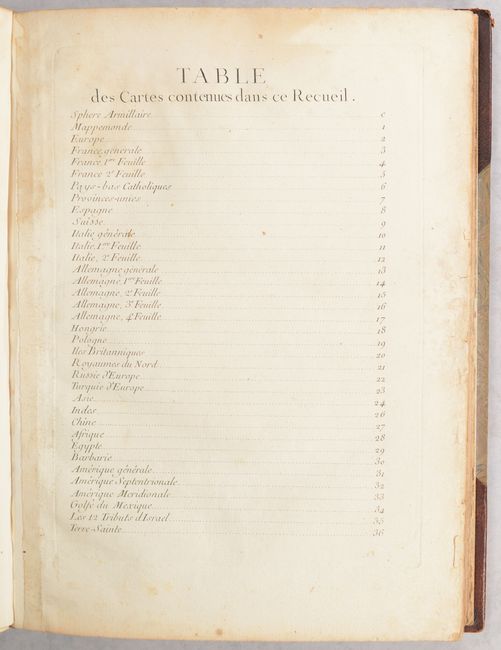 TABLE
des Cartes contenues dans ce Recueil.
Sphere Armillaire c
Mappemonde 1
Europe 2
France générale 3
France 1re Feuille 4
France 2e Feuille 5
Pays-bas Catholiques 6
Provinces-unies 7
Espagne 8
Suisse 9
Italie générale 10
Italie, 1re Feuille 11
Italie, 2e Feuille 12
Allemagne générale 13
Allemagne, 1re Feuille 14
Allemagne, 2e Feuille 15
Allemagne, 3e Feuille 16
Allemagne, 4e Feuille 17
Hongrie 18
Pologne 19
Iles Britanniques 20
Royaumes du Nord 21
Russie d'Europe 22
Turquie d'Europe 23
Asie 24
Indes 26
Chine 27
Afrique 28
Egypte 29
Barbarie 30
Amérique générale 31
Amérique Septentrionale 32
Amérique Meridionale 33
Golfe du Mexique 34
Les 12 Tributs d'Israel 35
Terre-Sainte 36